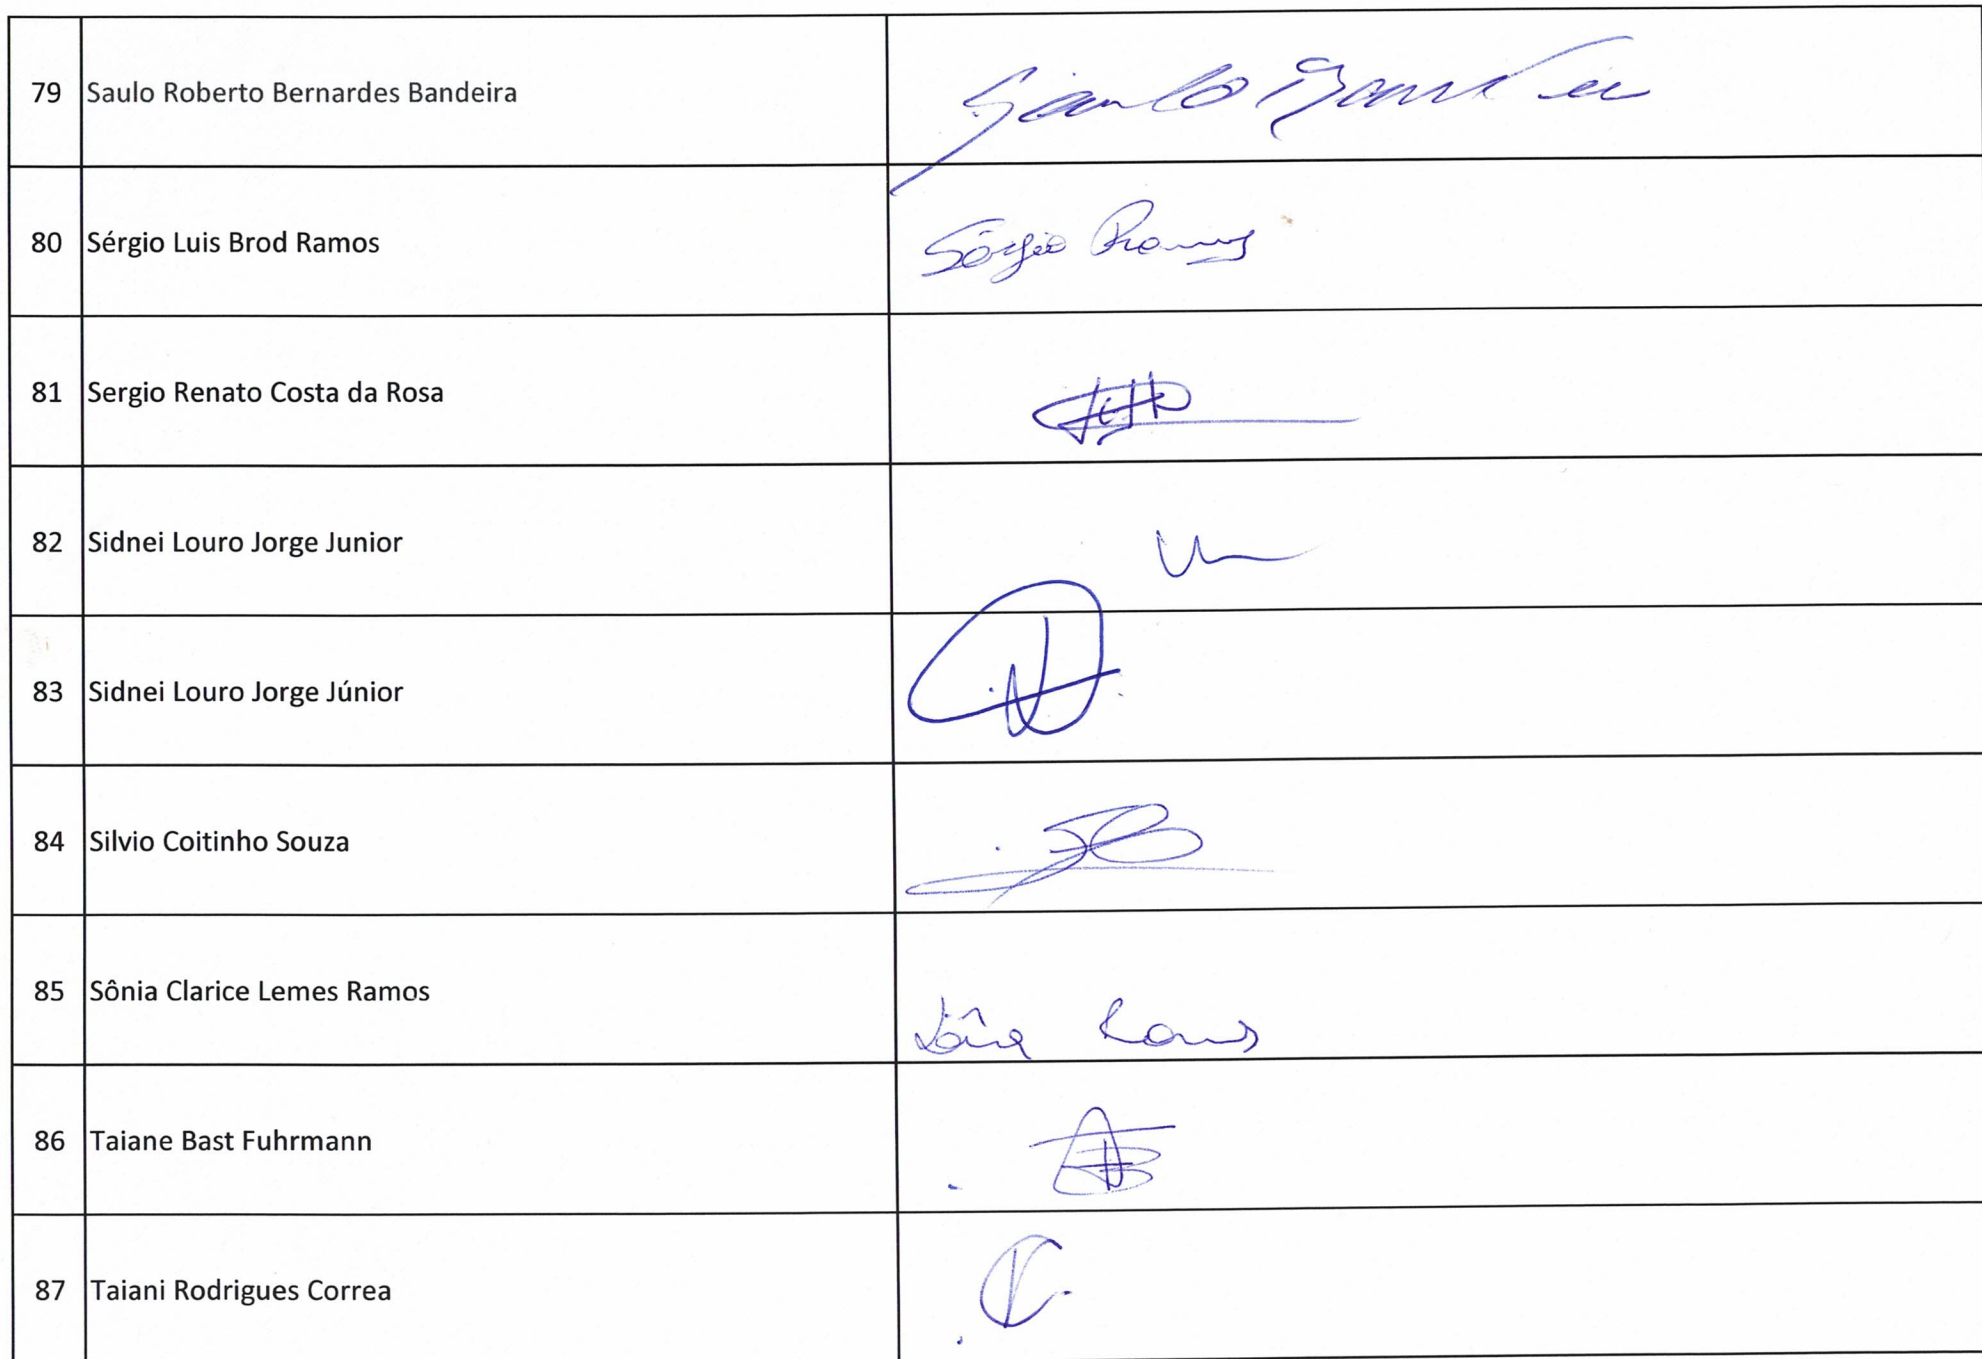 79 Saulo Roberto Bernardes Bandeira Saulo Bandeira
80 Sérgio Luis Brod Ramos Sérgio Ramos
81 Sergio Renato Costa da Rosa
82 Sidnei Louro Jorge Junior
83 Sidnei Louro Jorge Júnior
84 Silvio Coitinho Souza
85 Sônia Clarice Lemes Ramos Sônia Ramos
86 Taiane Bast Fuhrmann
87 Taiani Rodrigues Correa